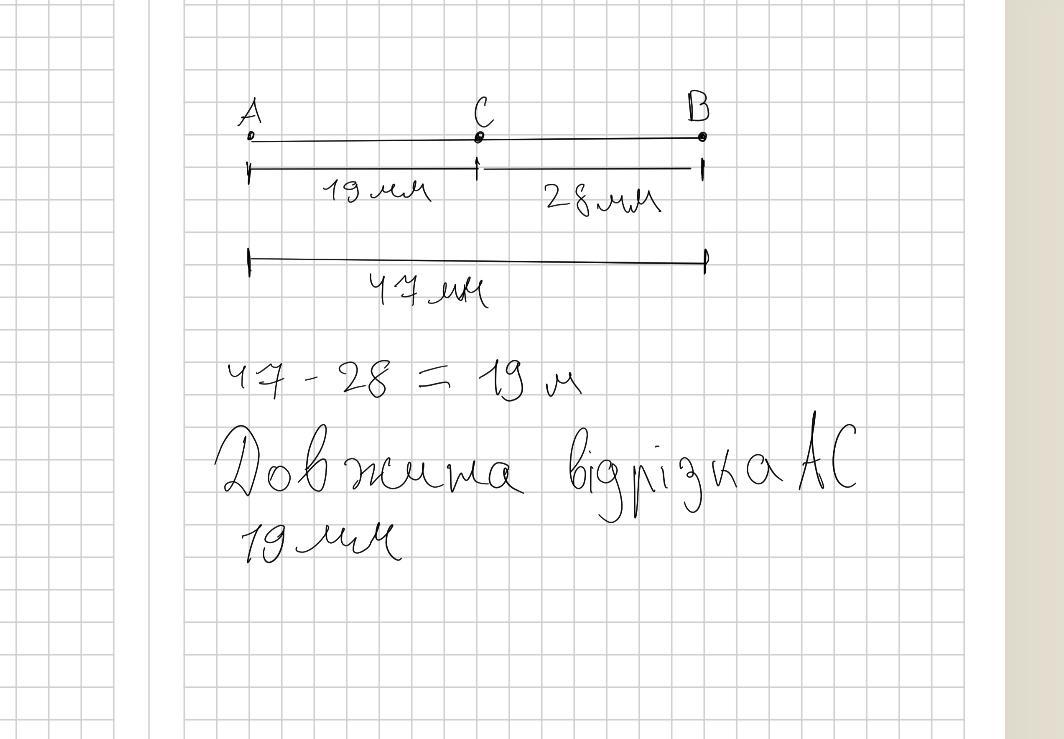 A C B
19 мм 28 мм
47 мм
47 - 28 = 19 м
Довжина відрізка AC
19 мм